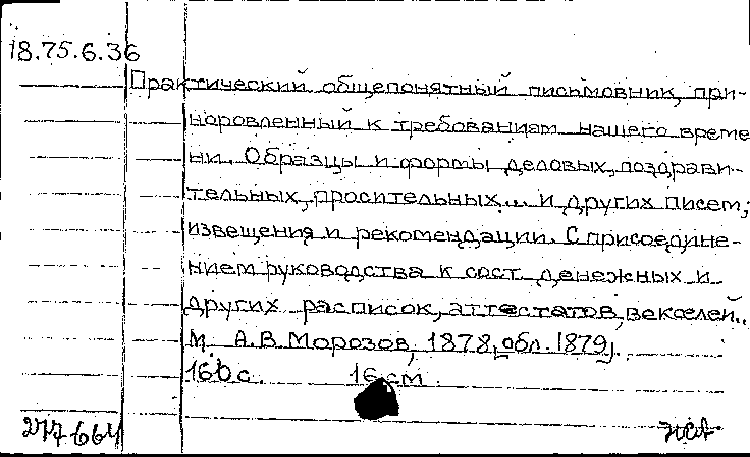 18.75.6.36
Практический общепонятный письмовник, при-
норовленный к требованиям нашего време
ни. Образцы и формы деловых, поздрави-
тельных, просительных... и других писем;
извещения и рекомендации. С присоедине-
нием руководства к сост. денежных и
других расписок, аттестатов, векселей..
М. А.В. Морозов, 1878, [обл. 1879].
160 с. 16 см.
277664